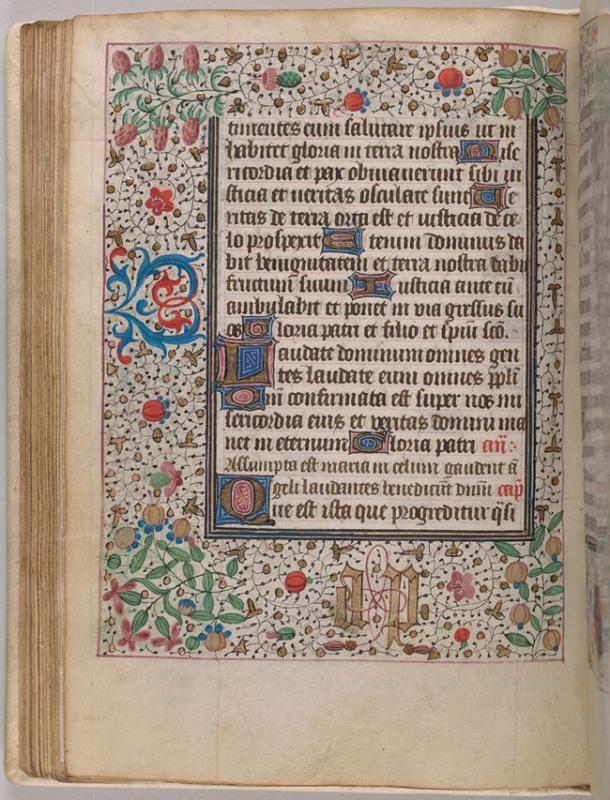 timentes eum salutare ipsius ut in
habitet gloria in terra nostra Mise
ricordia et pax obviaverunt sibi iu
sticia et veritas osculate sunt Ve
ritas de terra orta est et iusticia de ce
lo prospexit Etenim dominus da
bit benignitatem et terra nostra dabit
fructum suum Iusticia ante eū
ambulabit et ponet in via gressus su
os Gloria patri et filio et spiūi scō.
Laudate dominum omnes gen
tes laudate eum omnes ppli
Qm̄ confirmata est super nos mi
sericordia eius et veritas domini ma
net in eternum Gloria patri añ:
Assumpta est maria in celum gaudent ā
geli laudantes benedicūt dnm̄ cap
Que est ista que progreditur q̄si